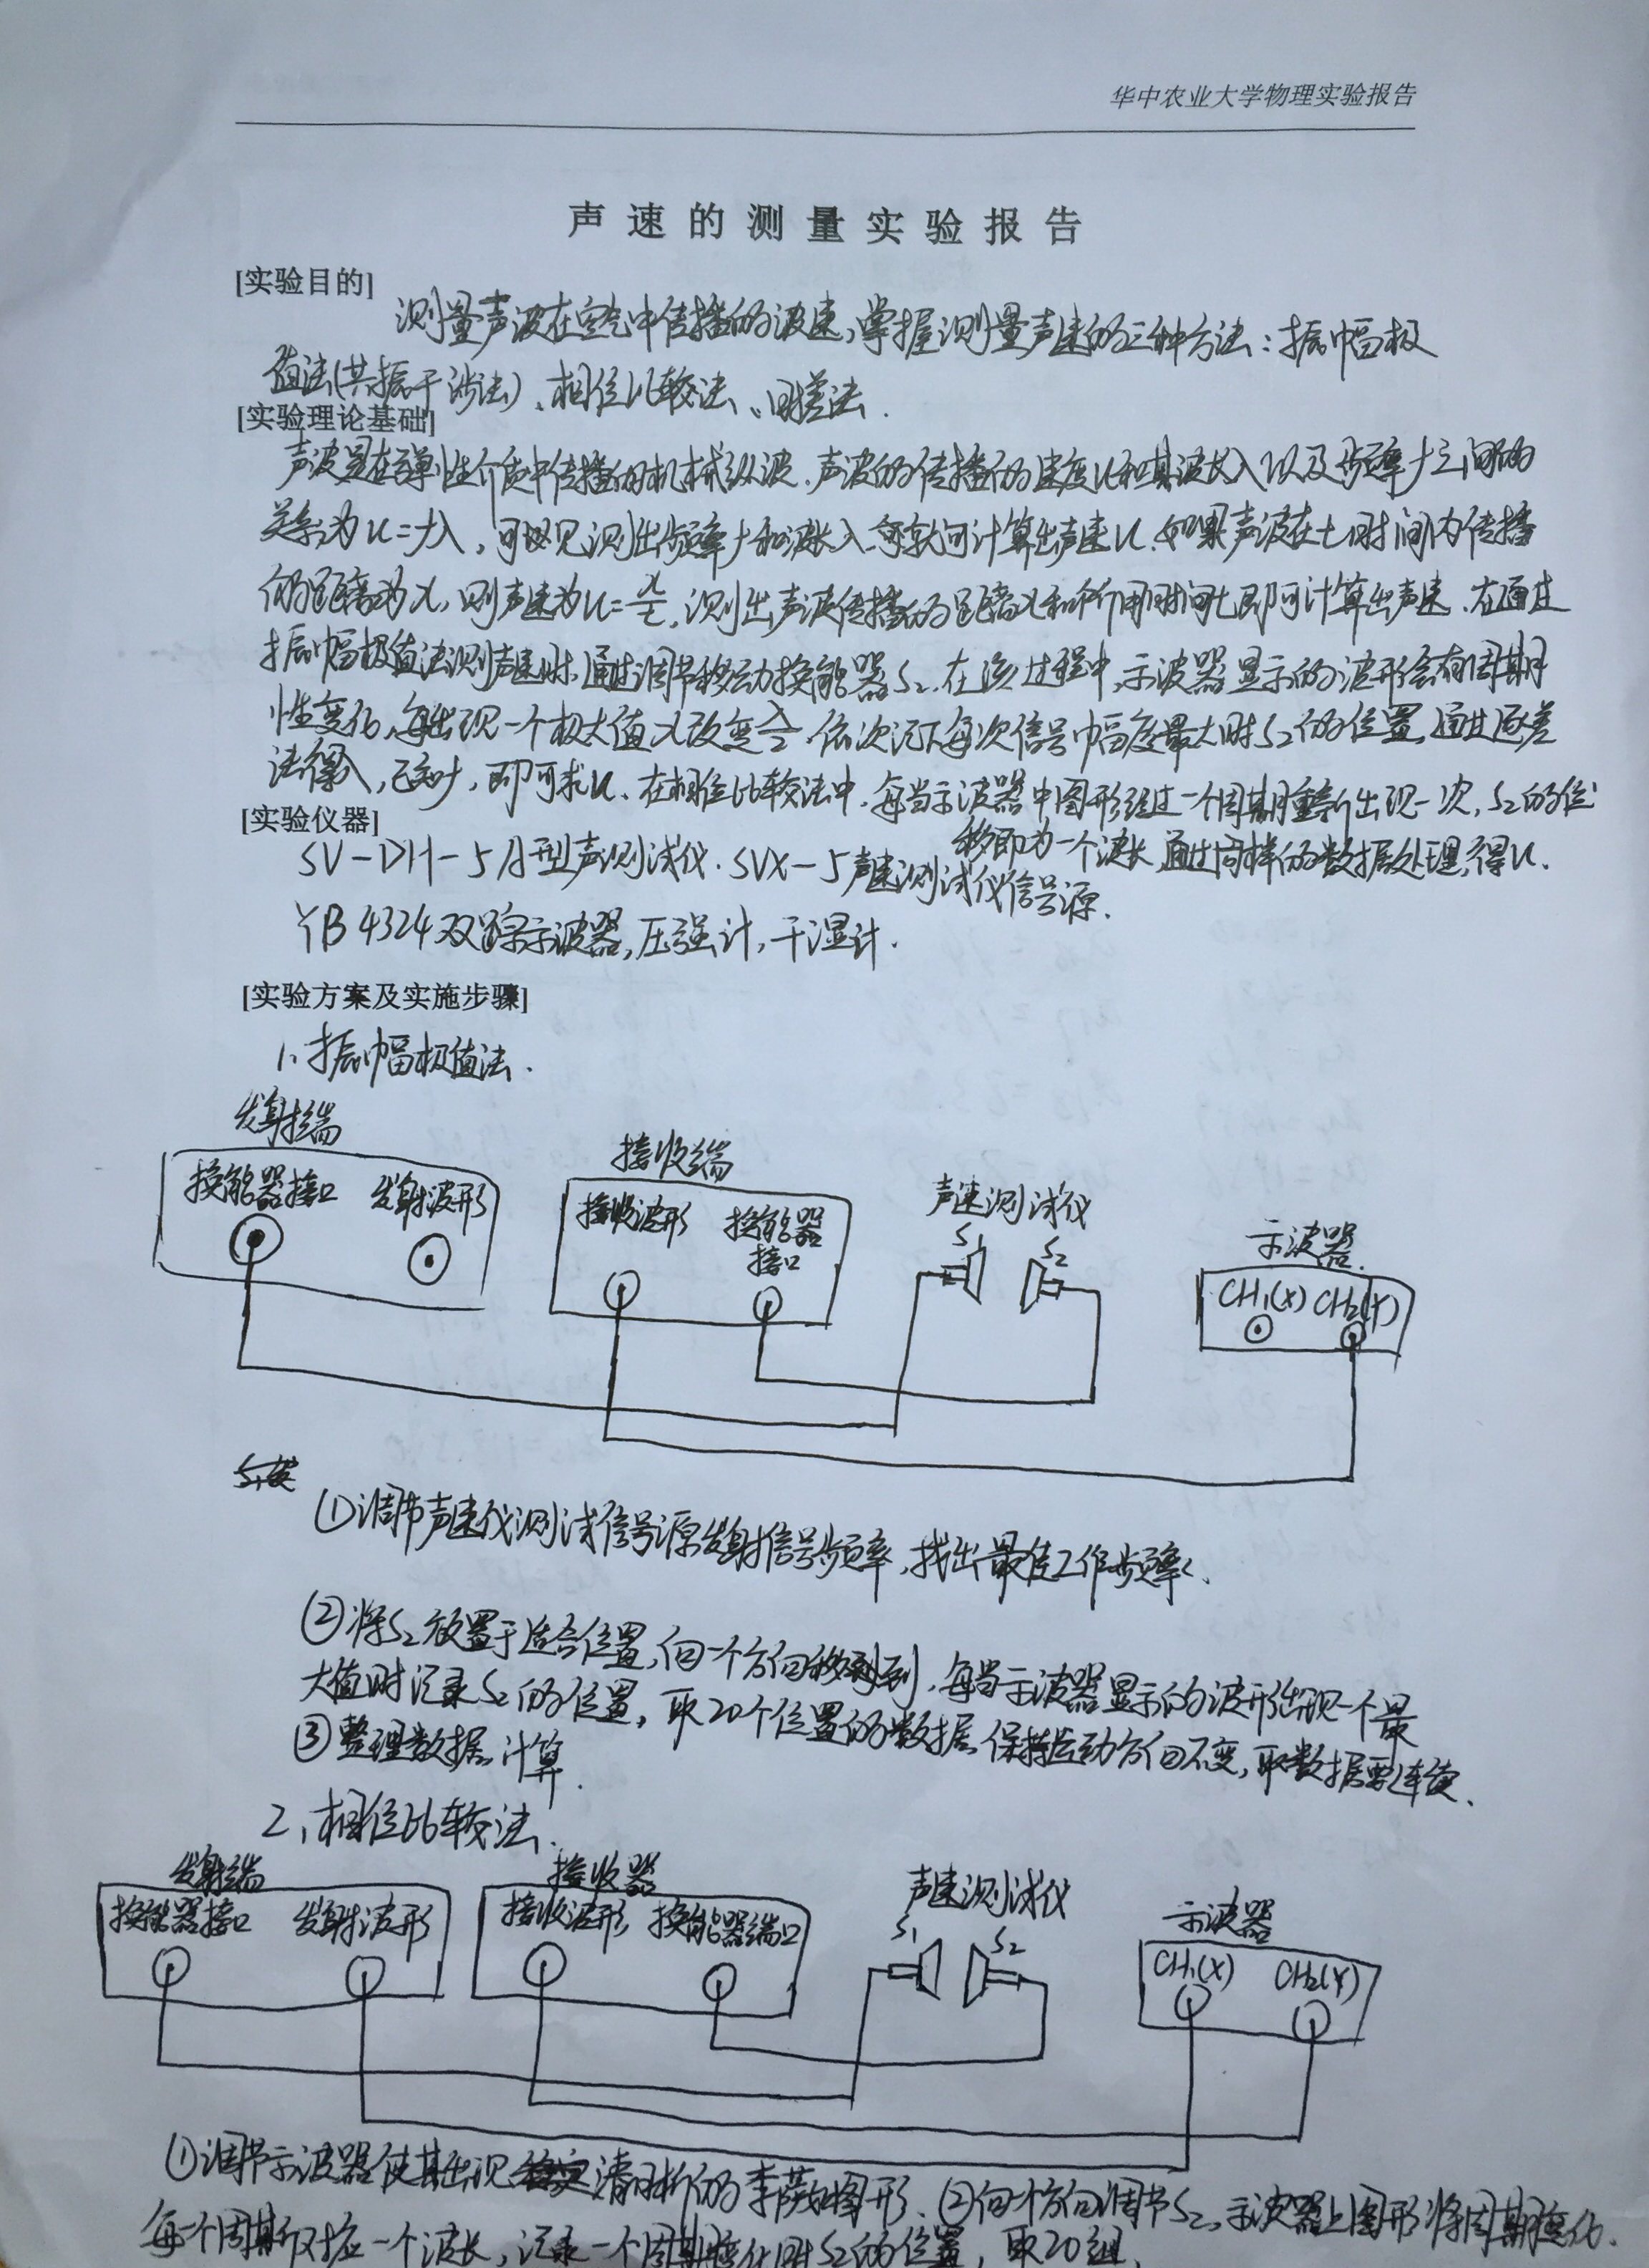 华中农业大学物理实验报告
声速的测量实验报告
[实验目的]
测量声波在空气中传播的波速,掌握测量声速的三种方法:振幅极
值法(共振干涉法)、相位比较法、时差法.
[实验理论基础]
声波是在弹性介质中传播的机械纵波.声波的传播的速度u和其波长λ以及频率f之间的
关系为u=fλ,可见测出频率f和波长λ就可计算出声速u.如果声波在t时间内传播
的距离为x,则声速为u=x/t,测出声波传播的距离x和所用时间t即可计算出声速.在通过
振幅极值法测声速时,通过调节移动换能器S2.在该过程中,示波器显示的波形会有周期
性变化,每出现一个极大值x改变λ/2.依次记下每次信号幅度最大时S2的位置,通过逐差
法得λ,已知f,即可求u.在相位比较法中,每当示波器中图形经过一个周期重新出现一次,S2的位
移即为一个波长,通过同样的数据处理,得u.
[实验仪器]
SV-DH-5A型声测试仪.SVX-5声速测试仪信号源.
YB4324双踪示波器,压强计,干湿计.
[实验方案及实施步骤]
1、振幅极值法.
发射端
换能器接口 发射波形
接收端
接收波形 换能器
接口
声速测试仪
S1 S2
示波器.
CH1(X) CH2(Y)
①调节声速仪测试信号源发射信号频率,找出最佳工作频率.
②将S2放置于适合位置,向一个方向移动到,每当示波器显示的波形出现一个最
大值时记录S2的位置,取20个位置的数据,保持运动方向不变,取数据要连续.
③整理数据,计算.
2、相位比较法.
发射端
换能器接口 发射波形
接收器
接收波形 换能器端口
声速测试仪
S1 S2
示波器
CH1(X) CH2(Y)
①调节示波器使其出现清晰的李萨如图形.②向一个方向调节S2,示波器上图形将周期变化.
每个周期对应一个波长,记录一个周期变化时S2的位置,取20组.